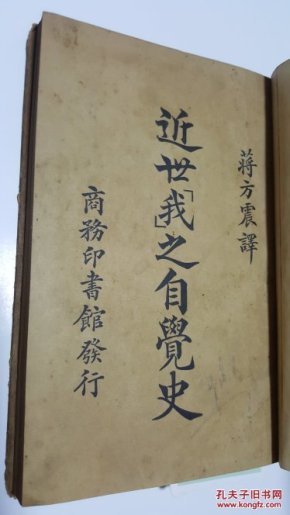 蔣方震譯
近世「我」之自覺史
商務印書館發行
孔夫子旧书网